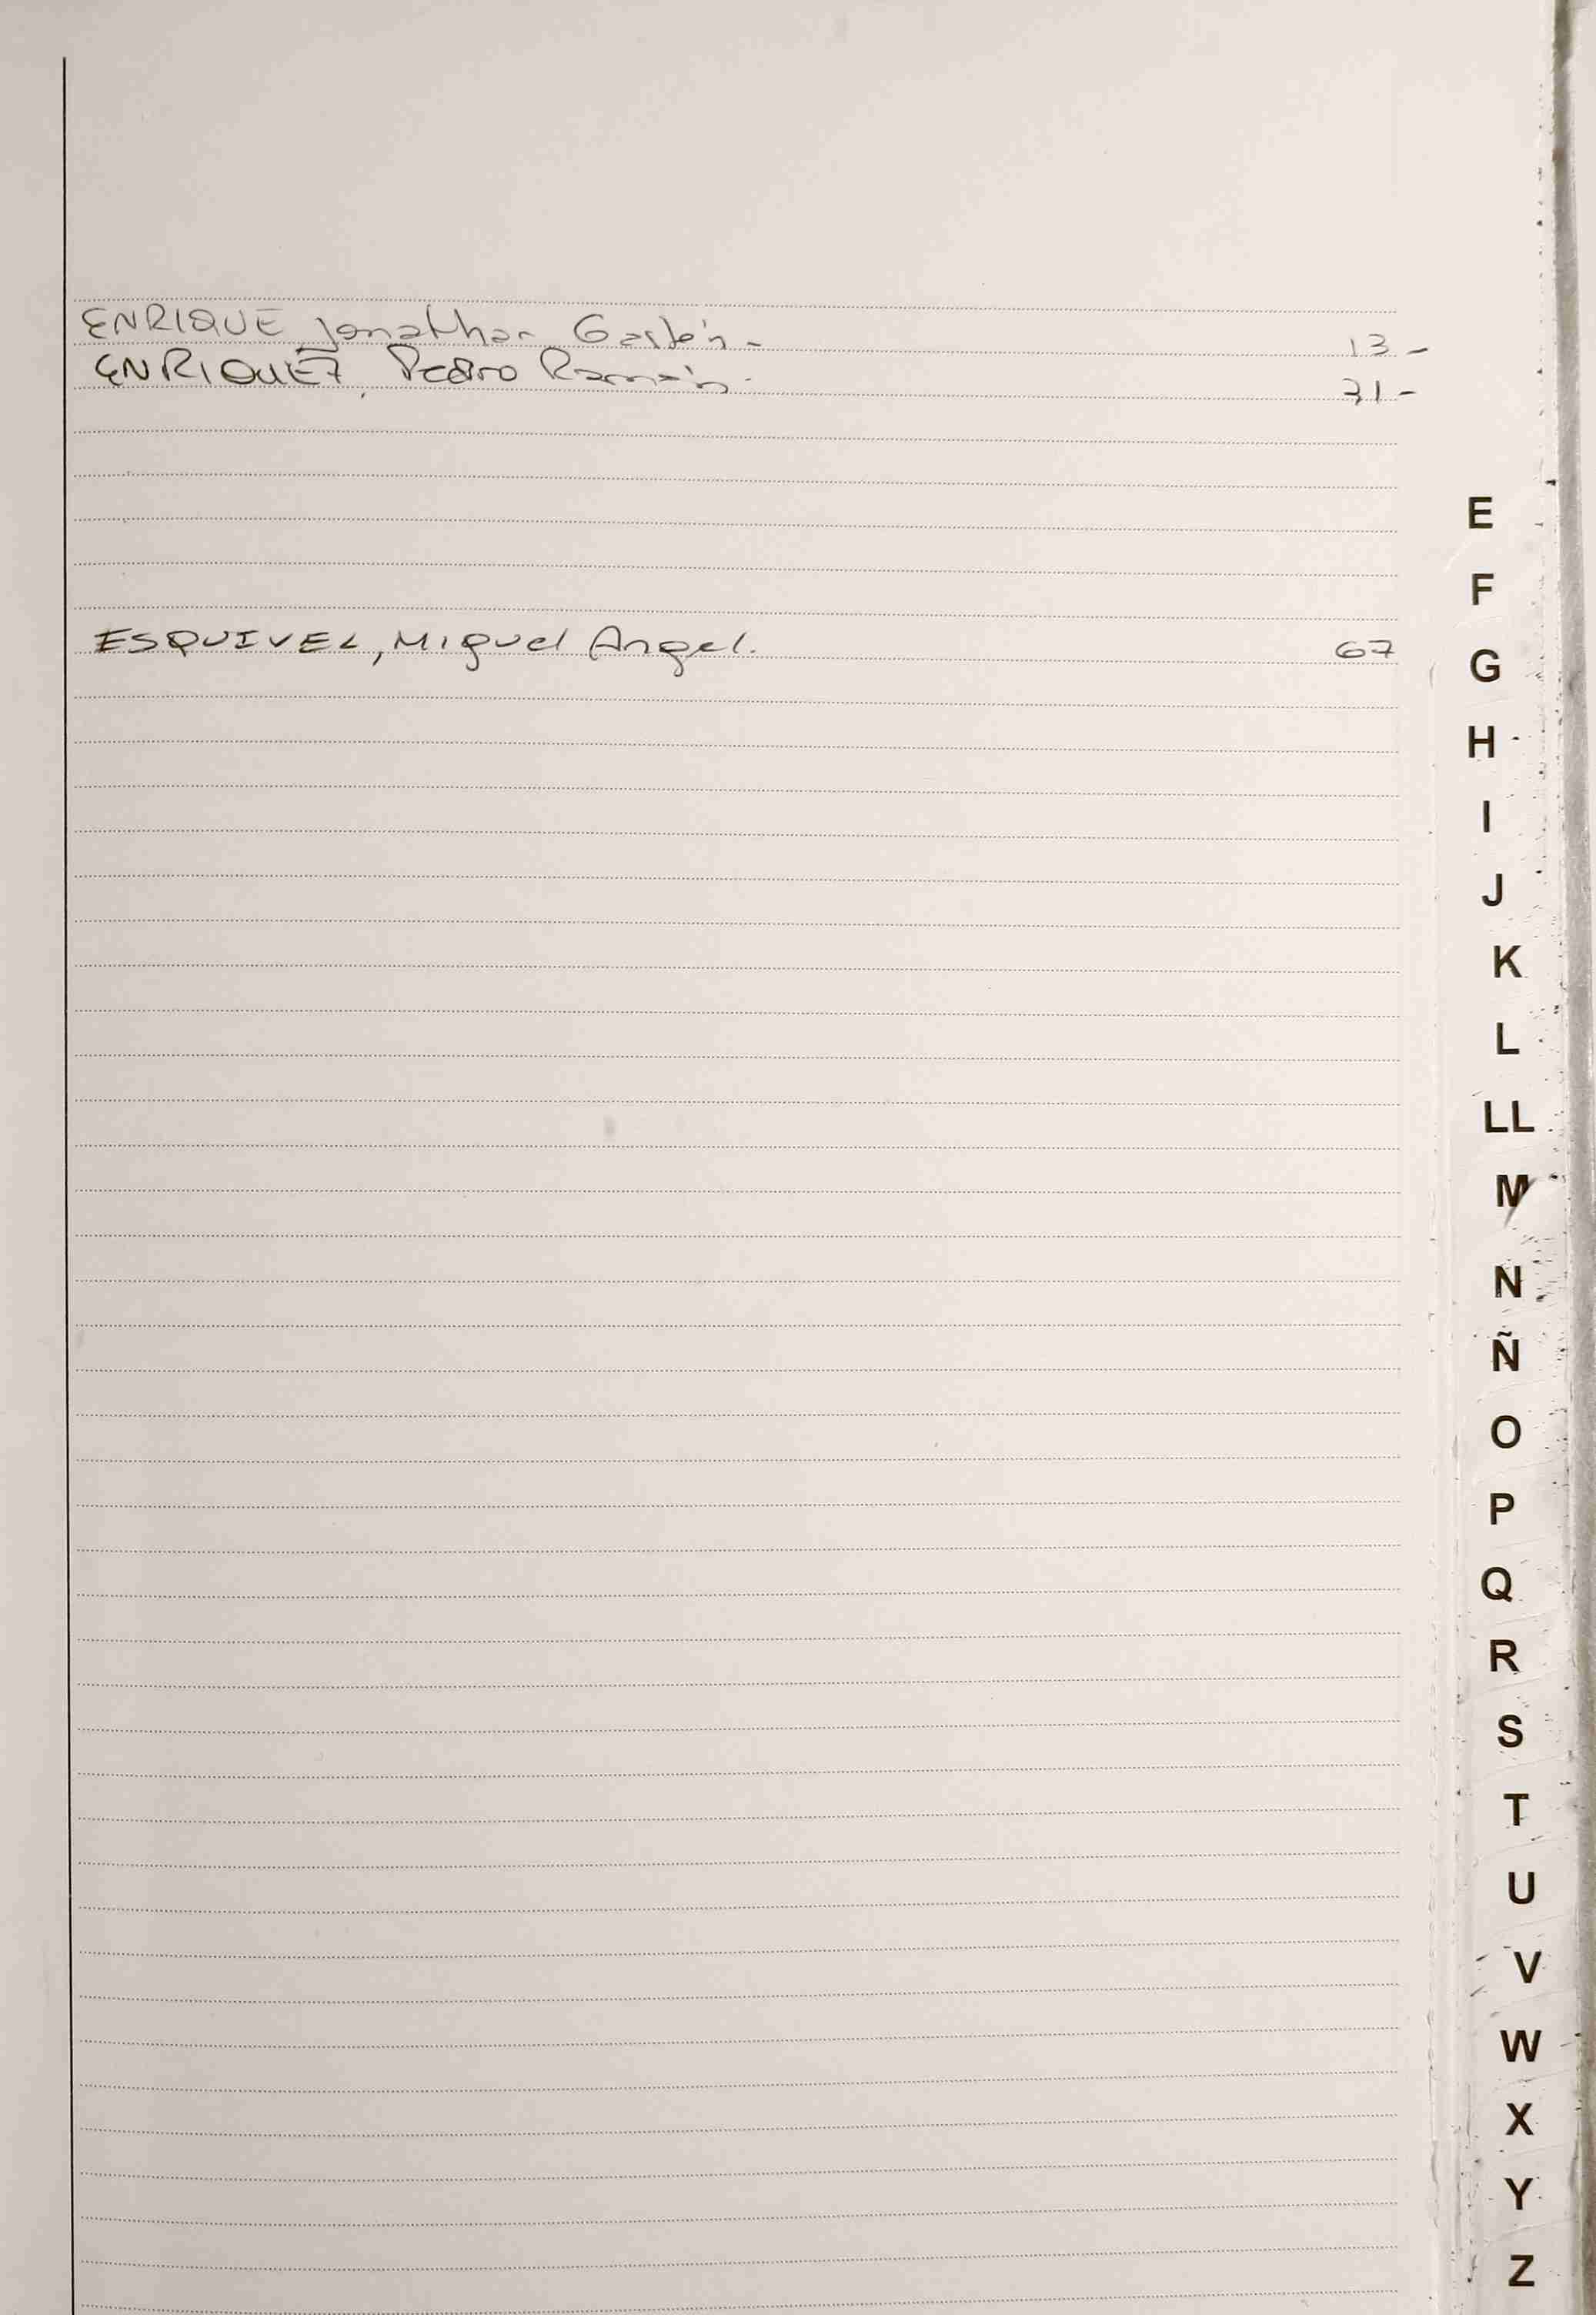 ENRIQUE Jonathan Gastón - 13 -
ENRIQUEZ, Pedro Ramón. 31 -
ESQUIVEL, Miguel Angel. 67
E
F
G
H
I
J
K
L
LL
M
N
Ñ
O
P
Q
R
S
T
U
V
W
X
Y
Z